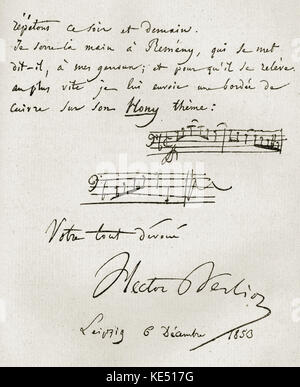 répétons ce soir et demain.
Je serre la main à Remény, qui se met
dit-il, à mes genoux ; et pour qu'il se relève
au plus vite je lui envoie une bordée de
cuivre sur son Hony thème :
Votre tout dévoué
Hector Berlioz
Leipzig 6 Décembre 1853
alamy stock photo
KE517G